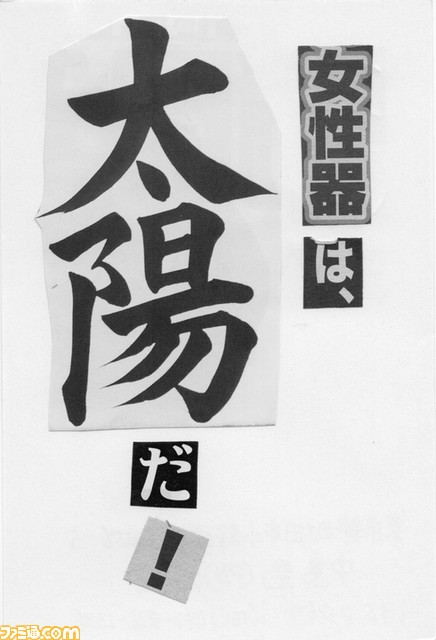 女性器
は、
太陽
だ
!
ファミ通.com